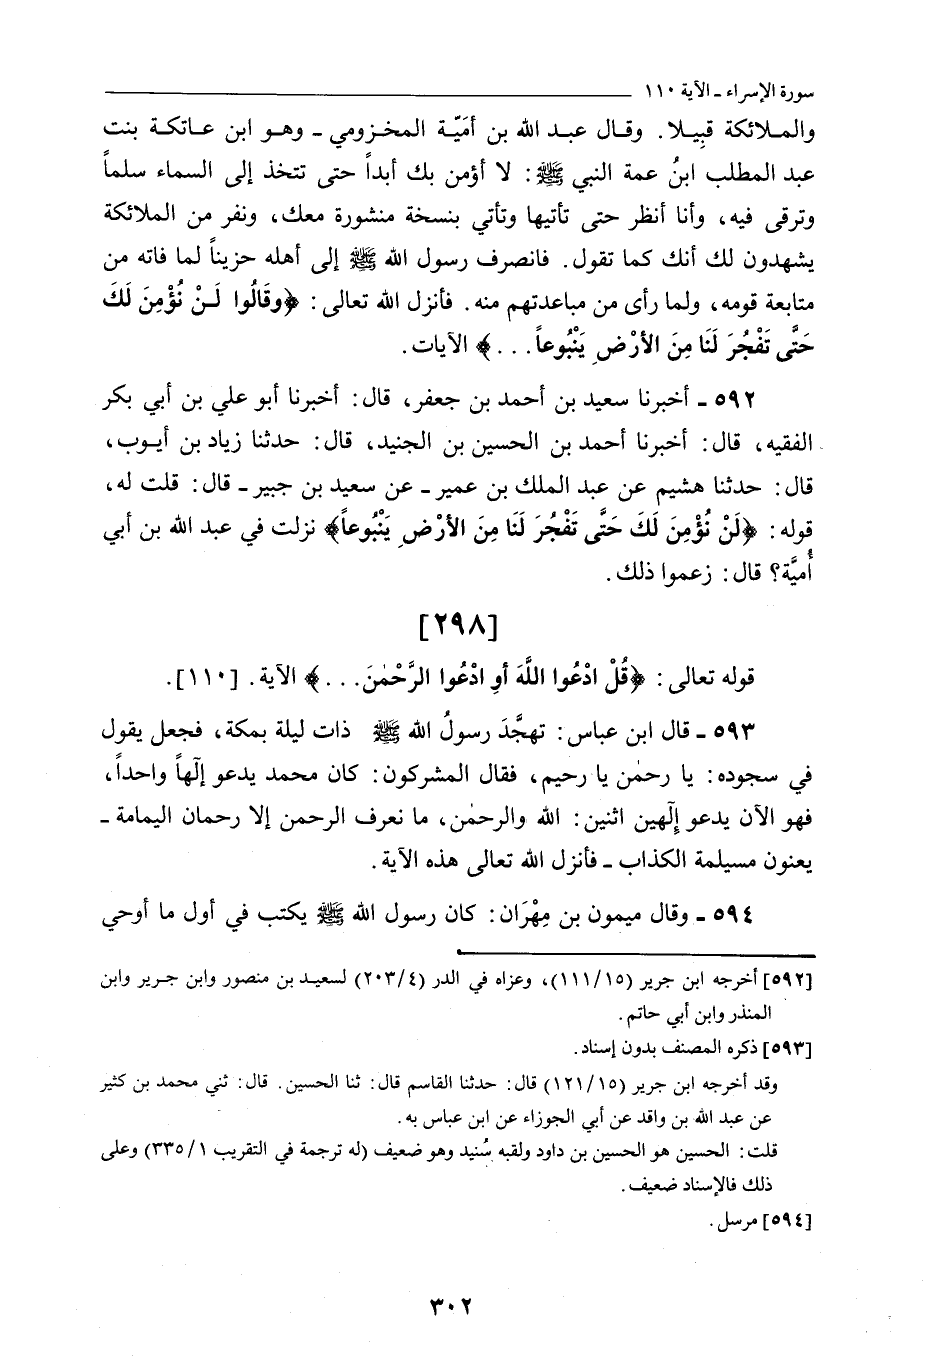 سورة الإسراء ـ الآية ١١٠
والملائكة قبيلا. وقال عبد الله بن أمَيّة المخزومي ـ وهو ابن عاتكة بنت
عبد المطلب ابنُ عمة النبي ﷺ: لا أؤمن بك أبداً حتى تتخذ إلى السماء سلماً
وترقى فيه، وأنا أنظر حتى تأتيها وتأتي بنسخة منشورة معك، ونفر من الملائكة
يشهدون لك أنك كما تقول. فانصرف رسول الله ﷺ إلى أهله حزيناً لما فاته من
متابعة قومه، ولما رأى من مباعدتهم منه. فأنزل الله تعالى: ﴿وقَالُوا لَنْ نُؤْمِنَ لَكَ
حَتَّى تَفْجُرَ لَنَا مِنَ الأرْضِ يَنْبُوعاً...﴾ الآيات.
٥٩٢ ـ أخبرنا سعيد بن أحمد بن جعفر، قال: أخبرنا أبو علي بن أبي بكر
الفقيه، قال: أخبرنا أحمد بن الحسين بن الجنيد، قال: حدثنا زياد بن أيوب،
قال: حدثنا هشيم عن عبد الملك بن عمير ـ عن سعيد بن جبير ـ قال: قلت له،
قوله: ﴿لَنْ نُؤْمِنَ لَكَ حَتَّى تَفْجُرَ لَنَا مِنَ الأرْضِ يَنْبُوعاً﴾ نزلت في عبد الله بن أبي
أُميَّة؟ قال: زعموا ذلك.
[٢٩٨]
قوله تعالى: ﴿قُلْ ادْعُوا اللَّهَ أوِ ادْعُوا الرَّحْمٰنَ...﴾ الآية. [١١٠].
٥٩٣ ـ قال ابن عباس: تهجَّدَ رسولُ الله ﷺ ذات ليلة بمكة، فجعل يقول
في سجوده: يا رحمٰن يا رحيم، فقال المشركون: كان محمد يدعو إلٓهاً واحداً،
فهو الآن يدعو إلٓهين اثنين: الله والرحمٰن، ما نعرف الرحمن إلا رحمان اليمامة ـ
يعنون مسيلمة الكذاب ـ فأنزل الله تعالى هذه الآية.
٥٩٤ ـ وقال ميمون بن مِهْرَان: كان رسول الله ﷺ يكتب في أول ما أوحي
[٥٩٢] أخرجه ابن جرير (١١١/١٥)، وعزاه في الدر (٢٠٣/٤) لسعيد بن منصور وابن جرير وابن
المنذر وابن أبي حاتم.
[٥٩٣] ذكره المصنف بدون إسناد.
وقد أخرجه ابن جرير (١٢١/١٥) قال: حدثنا القاسم قال: ثنا الحسين. قال: ثني محمد بن كثير
عن عبد الله بن واقد عن أبي الجوزاء عن ابن عباس به.
قلت: الحسين هو الحسين بن داود ولقبه سُنيد وهو ضعيف (له ترجمة في التقريب ٣٣٥/١) وعلى
ذلك فالإسناد ضعيف.
[٥٩٤] مرسل.
٣٠٢